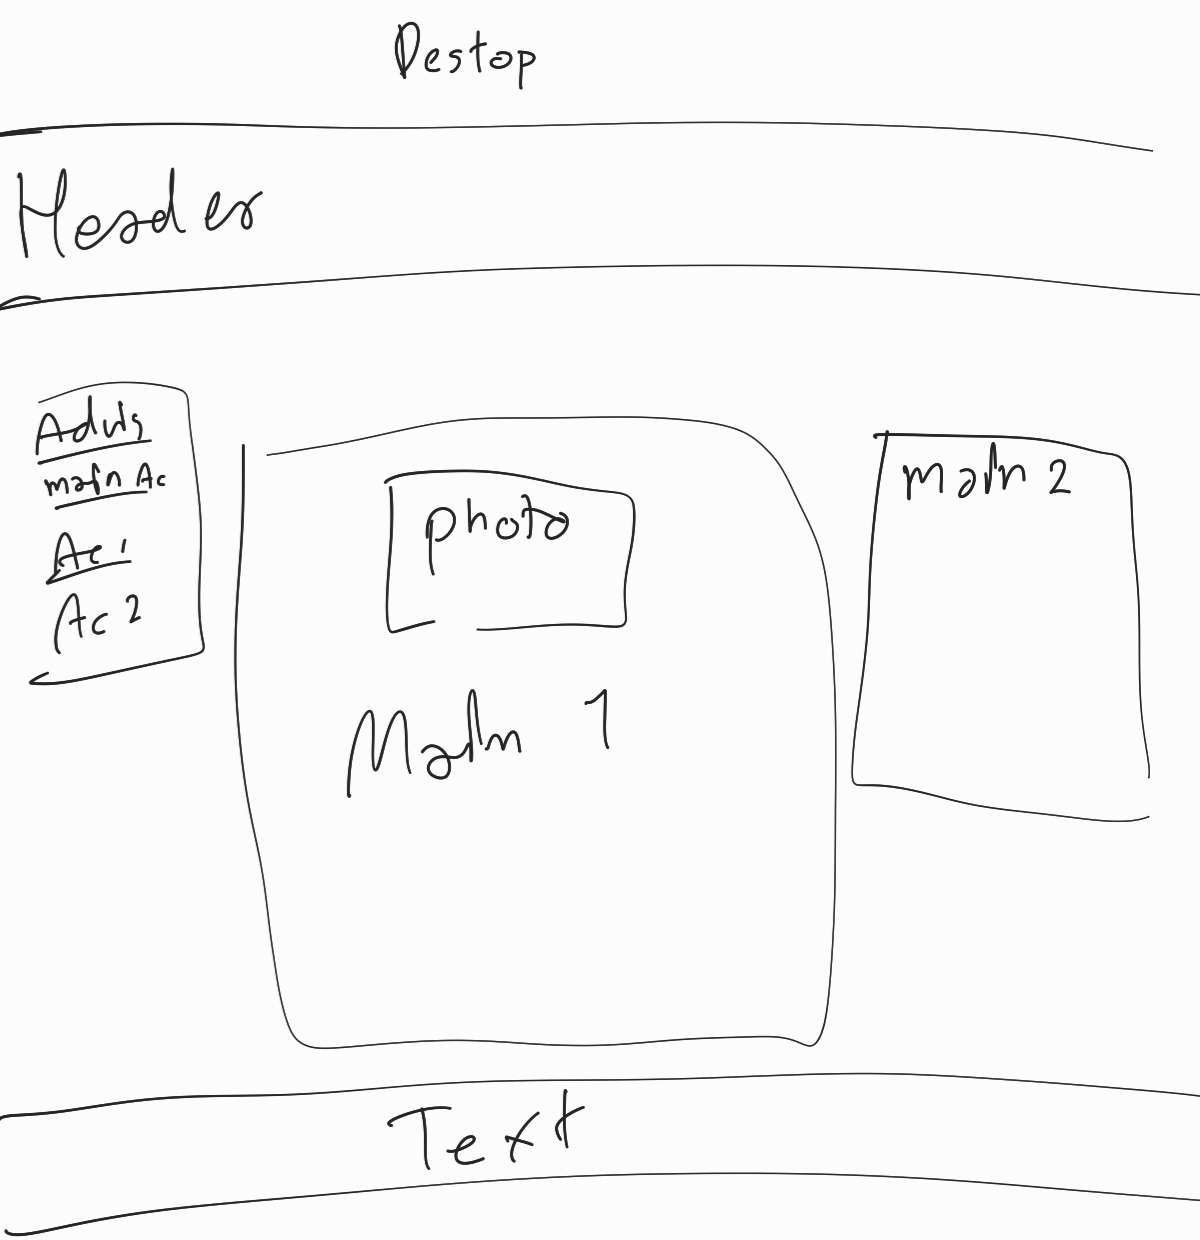 Destop
Header
main Ac
Ac 1
Ac 2
photo
Main 1
main 2
Text